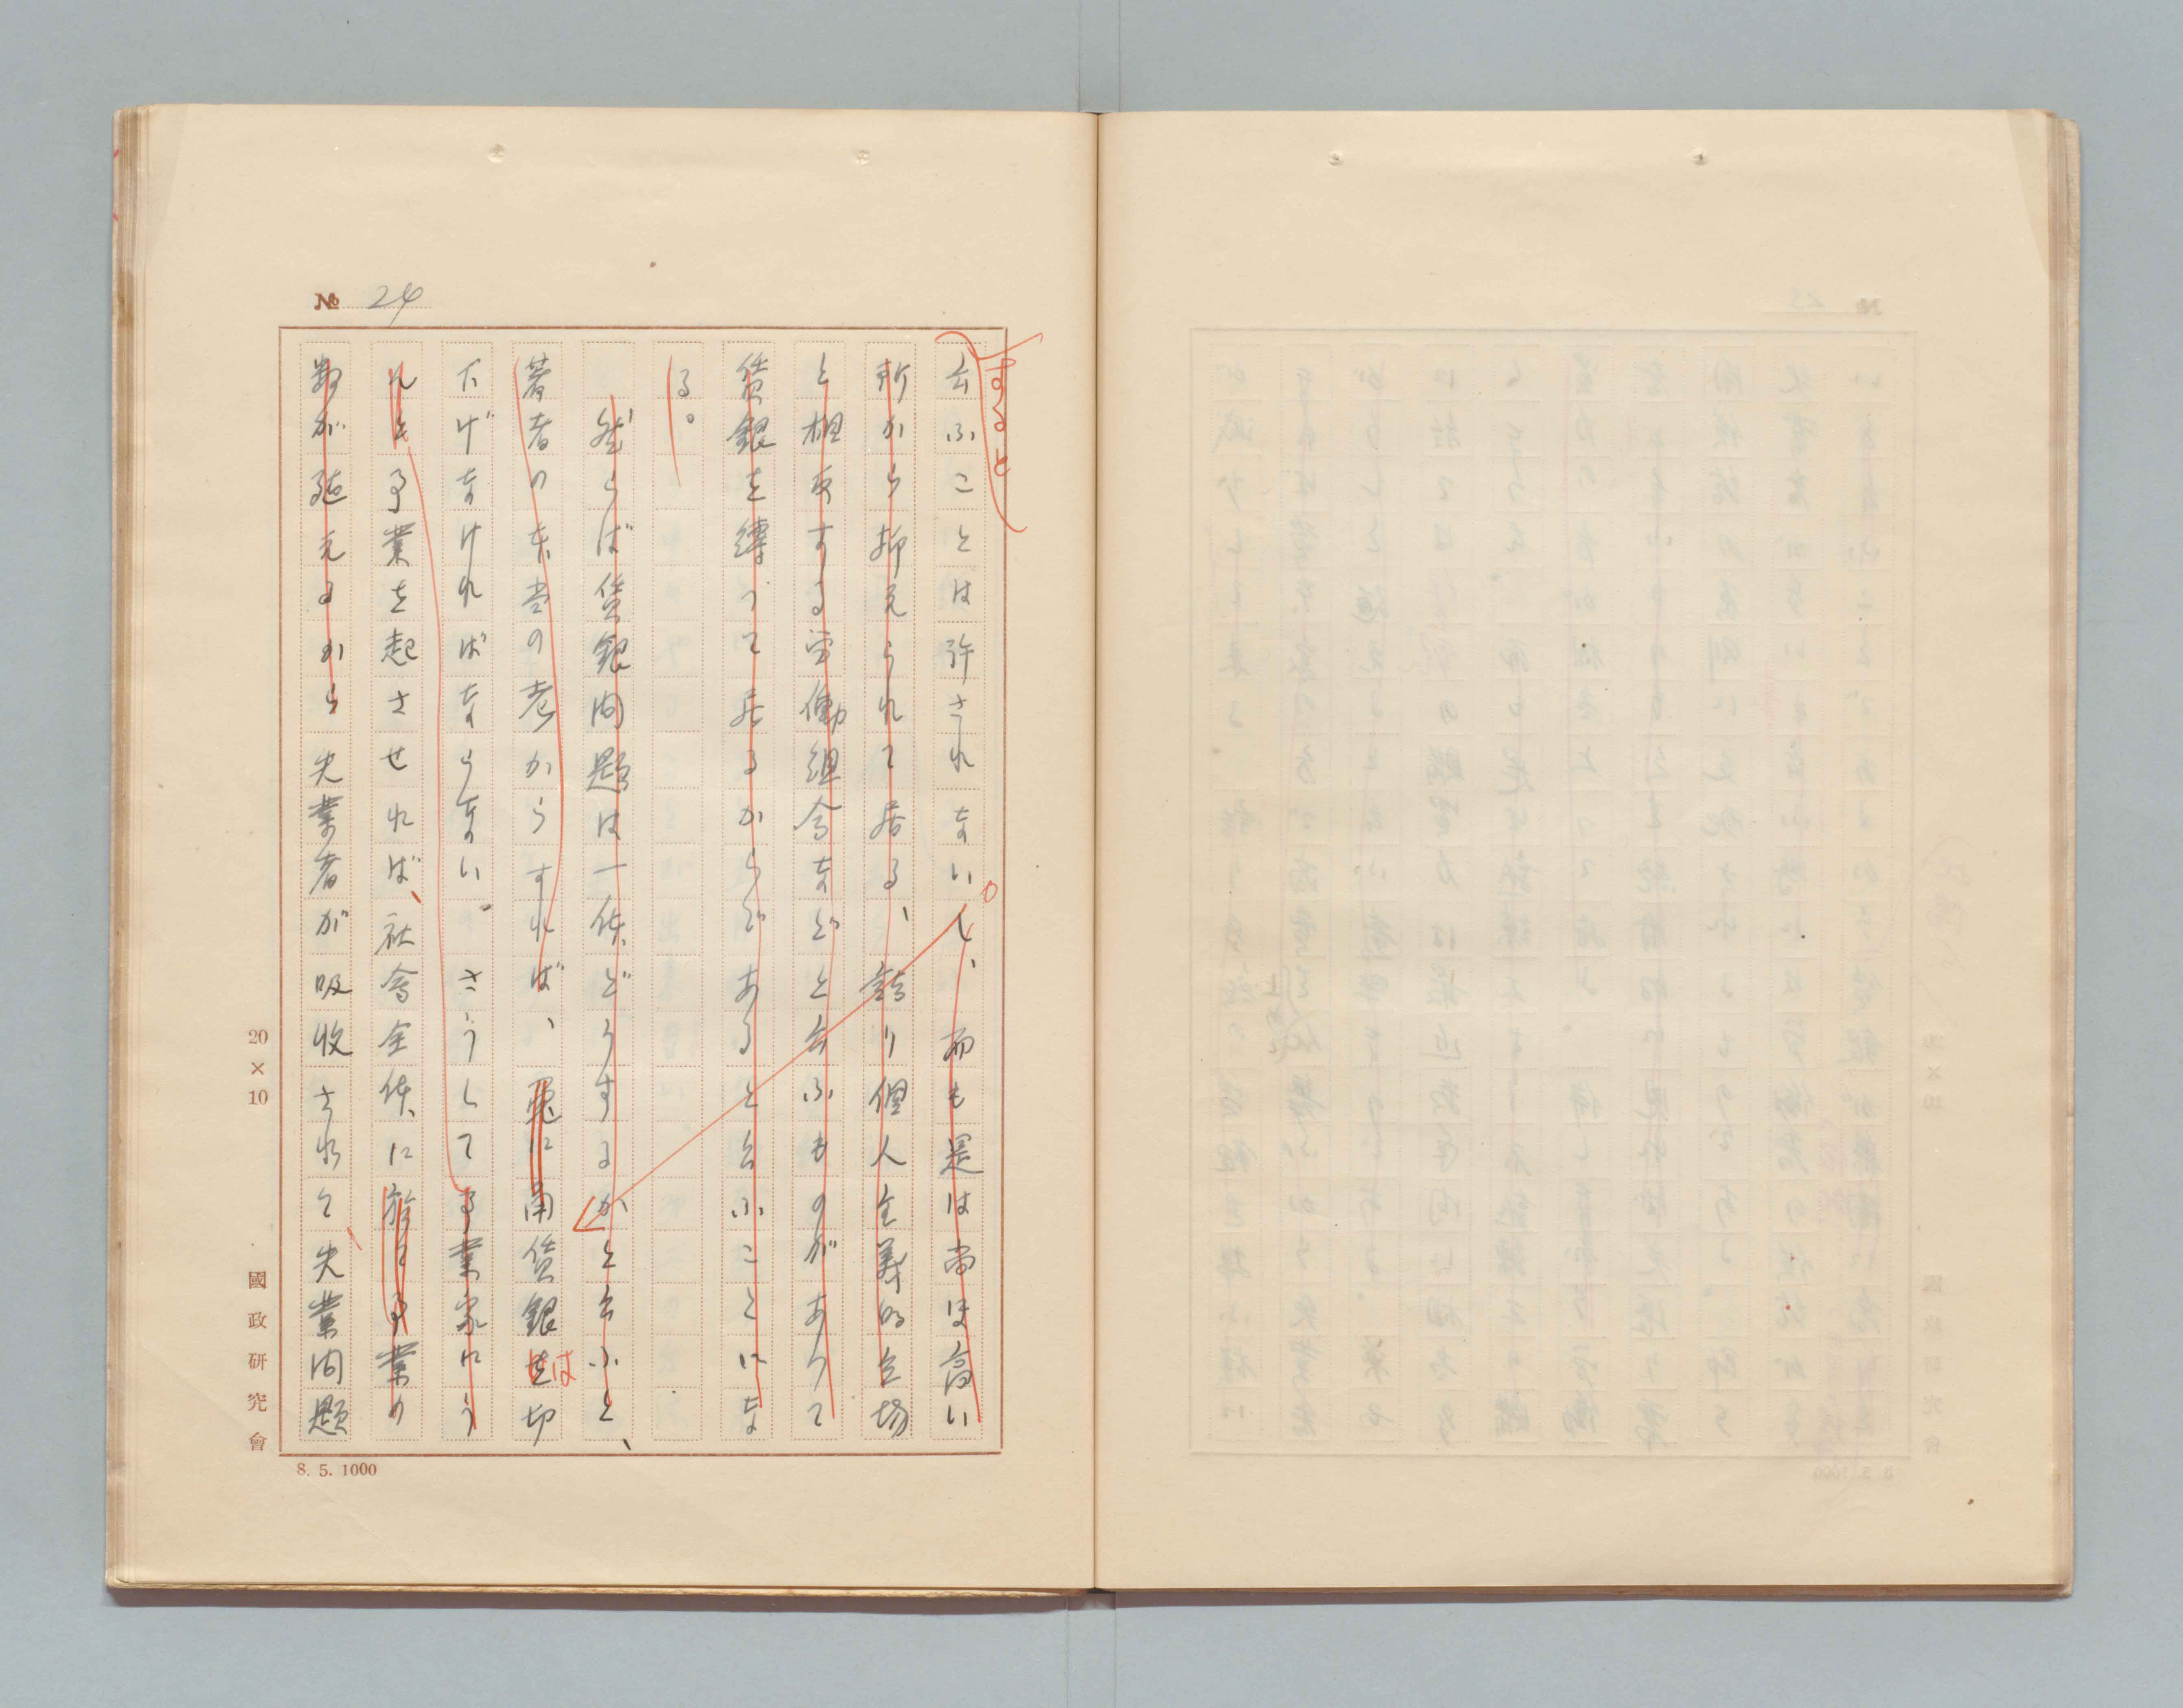 № 24
すると
云ふことは許されないし、而も是は尚ほ高い
所から抑えられて居る、詰り個人主義的立場
と相反する労働組合などと云ふものがありて
賃銀を縛つて居るからであると云ふことにな
る。
然らば賃銀問題は一体どうするかと云ふと、
著者の本書の考からすれば、兎に角賃銀を切
は
下げなければならない。さうして事業家にう
んと事業を起させれば、社会全体に於て事業の
数が殖えるから失業者が吸収されて、失業問題
20×10
國政研究會
8. 5. 1000